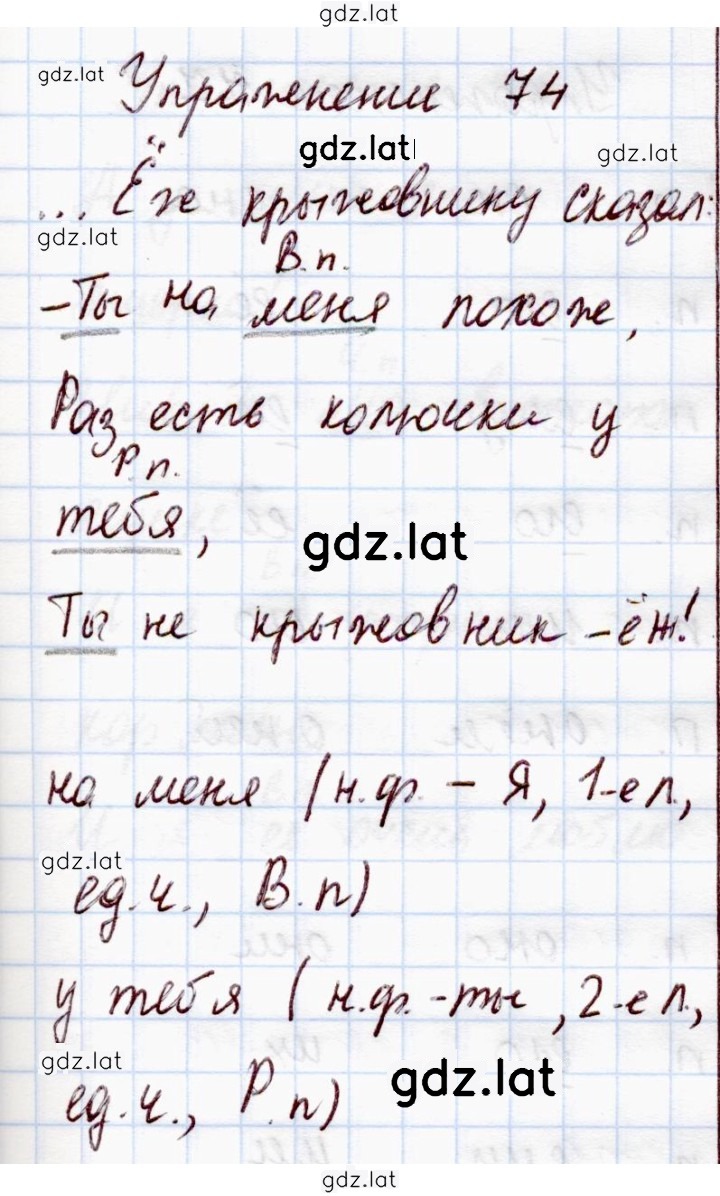 gdz.lat
gdz.lat Упражнение 74
gdz.lat gdz.lat
... Ёж крыжовнику сказал:
gdz.lat
В.п.
-Ты на меня похоже,
Раз есть колючки у
Р.п.
тебя,
gdz.lat
Ты не крыжовник - ёж!
на меня (н.ф. - Я, 1-е л.,
gdz.lat
ед.ч., В.п)
у тебя (н.ф. - ты, 2-е л.,
gdz.lat gdz.lat
ед.ч., Р.п)
gdz.lat